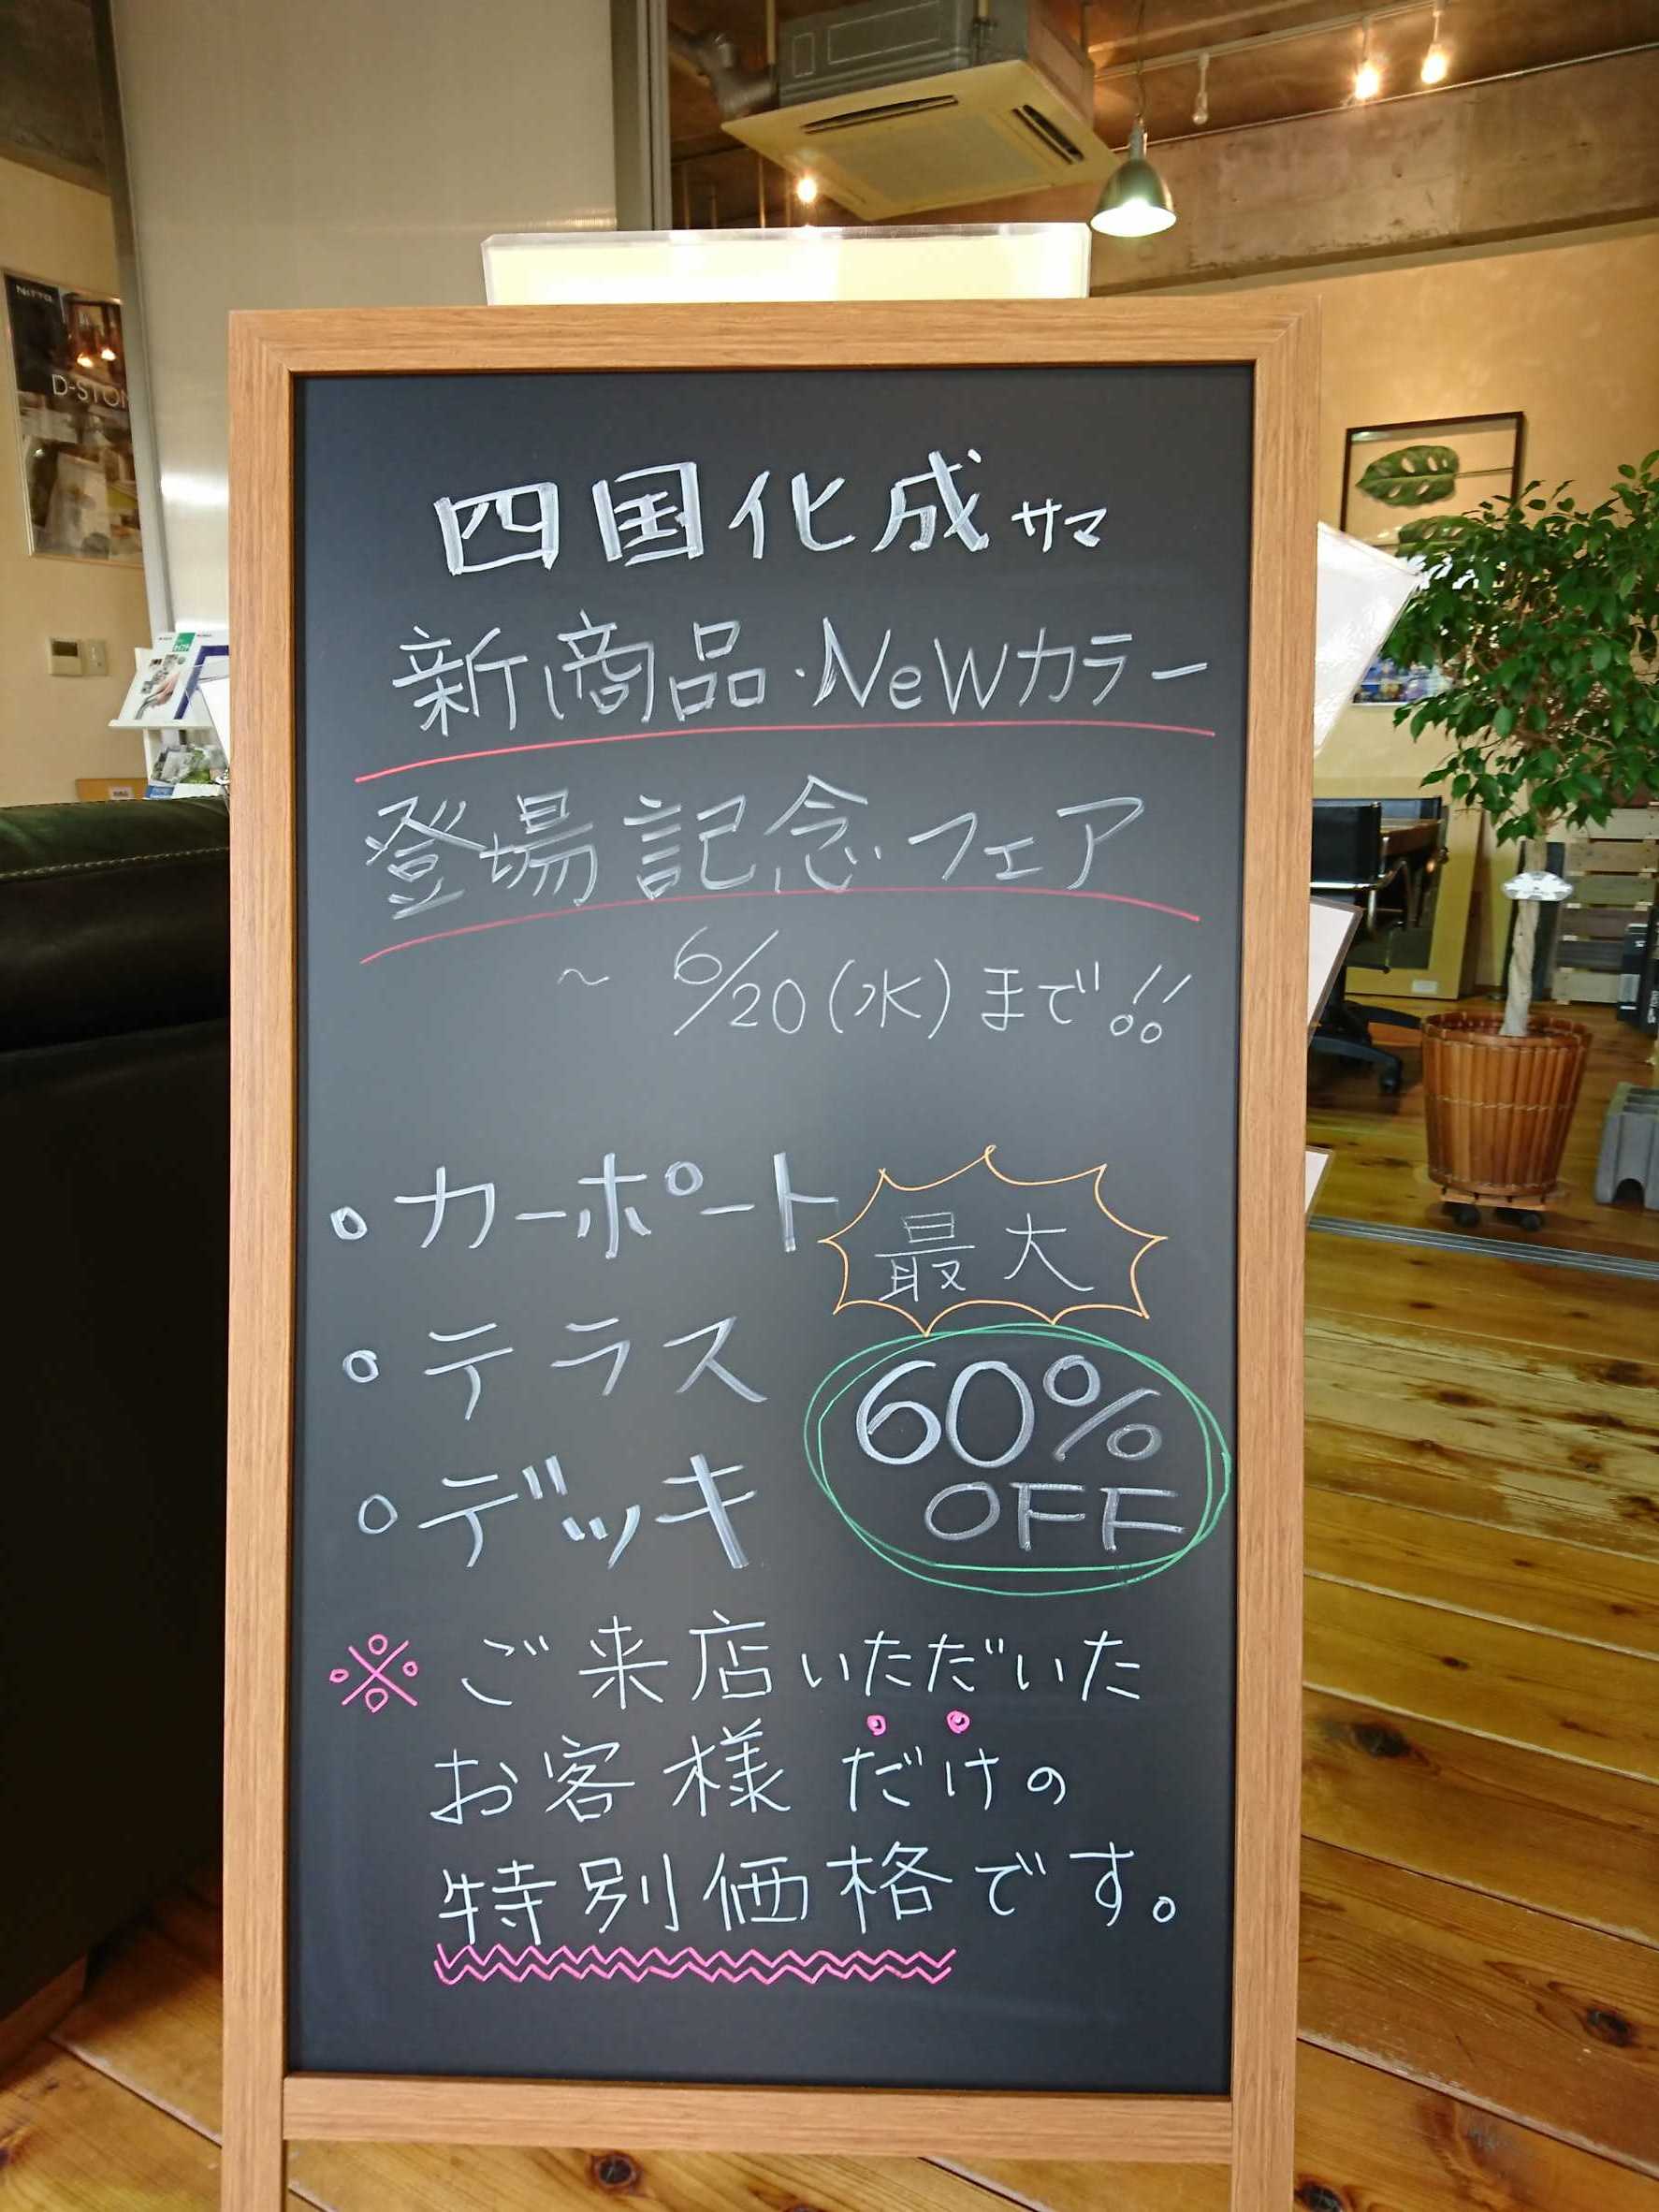 四国化成サマ
新商品・Newカラー
登場記念フェア
～ 6/20(水)まで!!
・カーポート
・テラス
・デッキ
最大
60%
OFF
※ご来店いただいた
お客様だけの
特別価格です。
NITTO
D-STON